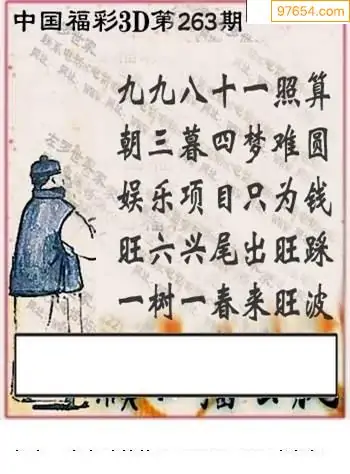 中国福彩3D第263期
97654.com
九九八十一照算
朝三暮四梦难圆
娱乐项目只为钱
旺六兴尾出旺踩
一树一春来旺波